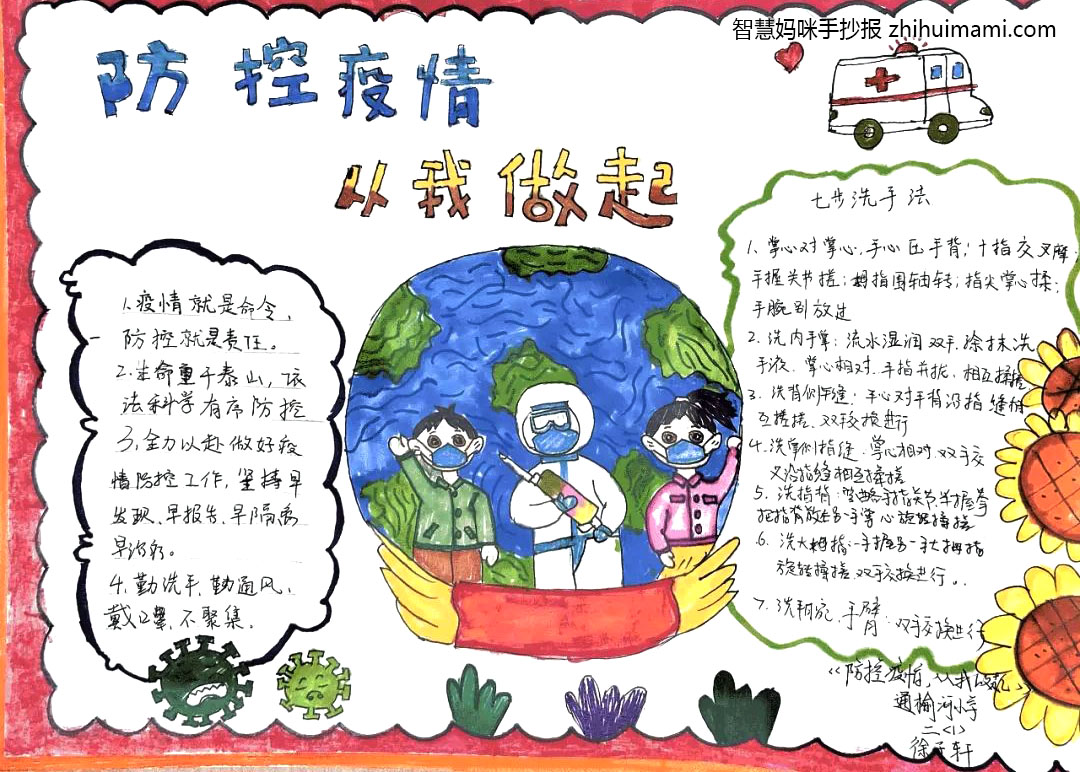 智慧妈咪手抄报 zhihuimami.com
防控疫情
从我做起
1.疫情就是命令,
防控就是责任。
2.生命重于泰山,依
法科学有序防控
3.全力以赴做好疫
情防控工作,坚持早
发现、早报告、早隔离
早治疗。
4.勤洗手、勤通风、
戴口罩、不聚集。
七步洗手法
1、掌心对掌心,手心压手背;十指交叉摩
手握关节搓;拇指围轴转;指尖掌心揉;
手腕别放过
2、洗内手掌:流水湿润双手,涂抹洗
手液,掌心相对,手指并拢,相互揉搓
3、洗背侧指缝:手心对手背沿指缝相
互搓揉,双手交换进行
4、洗掌侧指缝:掌心相对,双手交
叉沿指缝相互揉搓
5、洗指背:弯曲手指关节,半握拳
把指背放在另一手掌心旋转揉搓
6、洗大拇指:一手握另一手大拇指
旋转揉搓,双手交换进行。
7、洗手腕、手臂:双手交换进行
《防控疫情,从我做起》
通榆河小学
二<1>
徐子轩